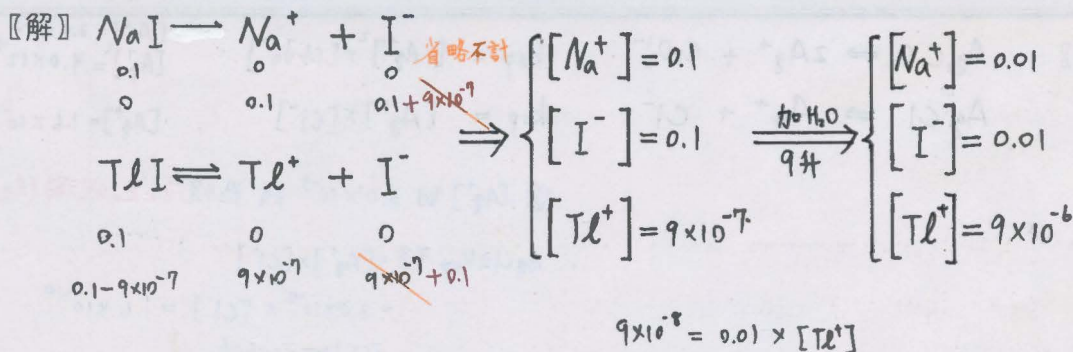 〖解〗 NaI ⇌ Na⁺ + I⁻
0.1 0 0 省略不計
0 0.1 0.1 + 9×10⁻⁷
TlI ⇌ Tl⁺ + I⁻
0.1 0 0
0.1-9×10⁻⁷ 9×10⁻⁷ 9×10⁻⁷ + 0.1
⇒ { [Na⁺] = 0.1
[I⁻] = 0.1
[Tl⁺] = 9×10⁻⁷
加H₂O
9升
{ [Na⁺] = 0.01
[I⁻] = 0.01
[Tl⁺] = 9×10⁻⁶
9×10⁻⁸ = 0.01 × [Tl⁺]